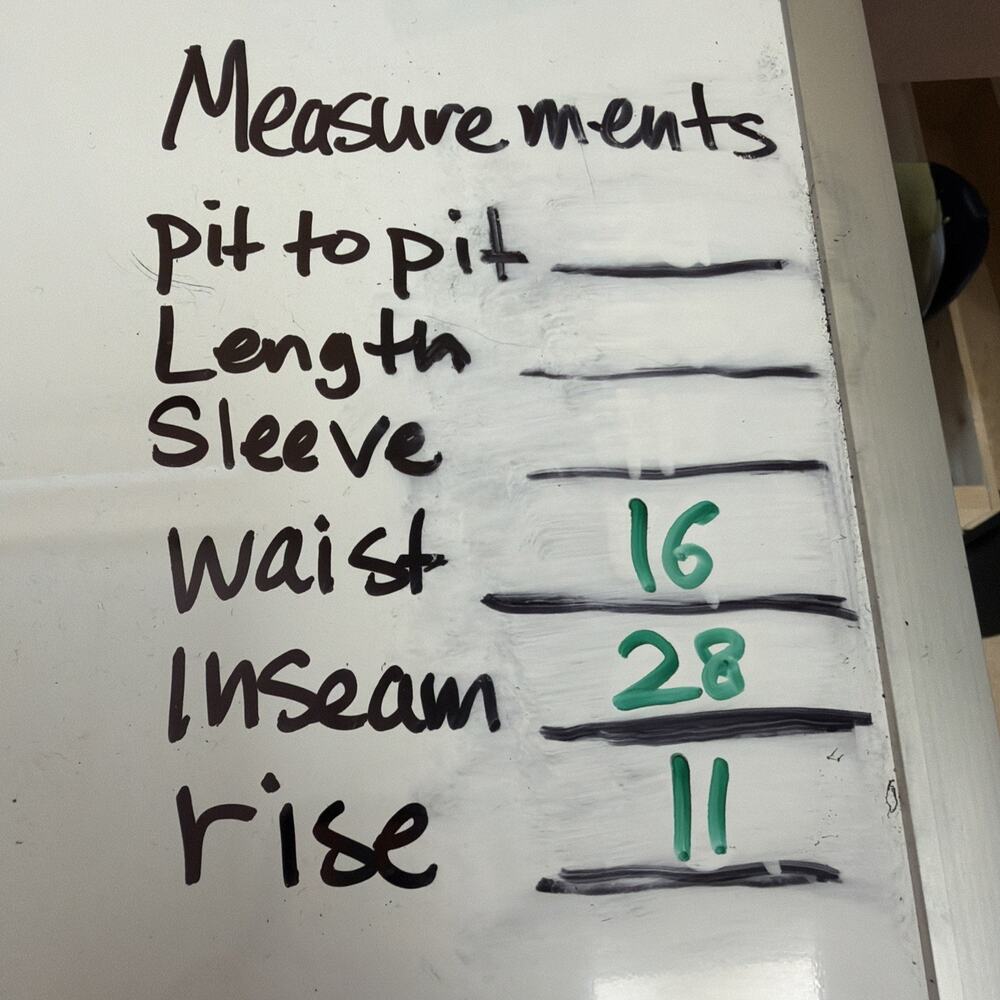 Measurements
pit to pit
Length
Sleeve
waist 16
Inseam 28
rise 11